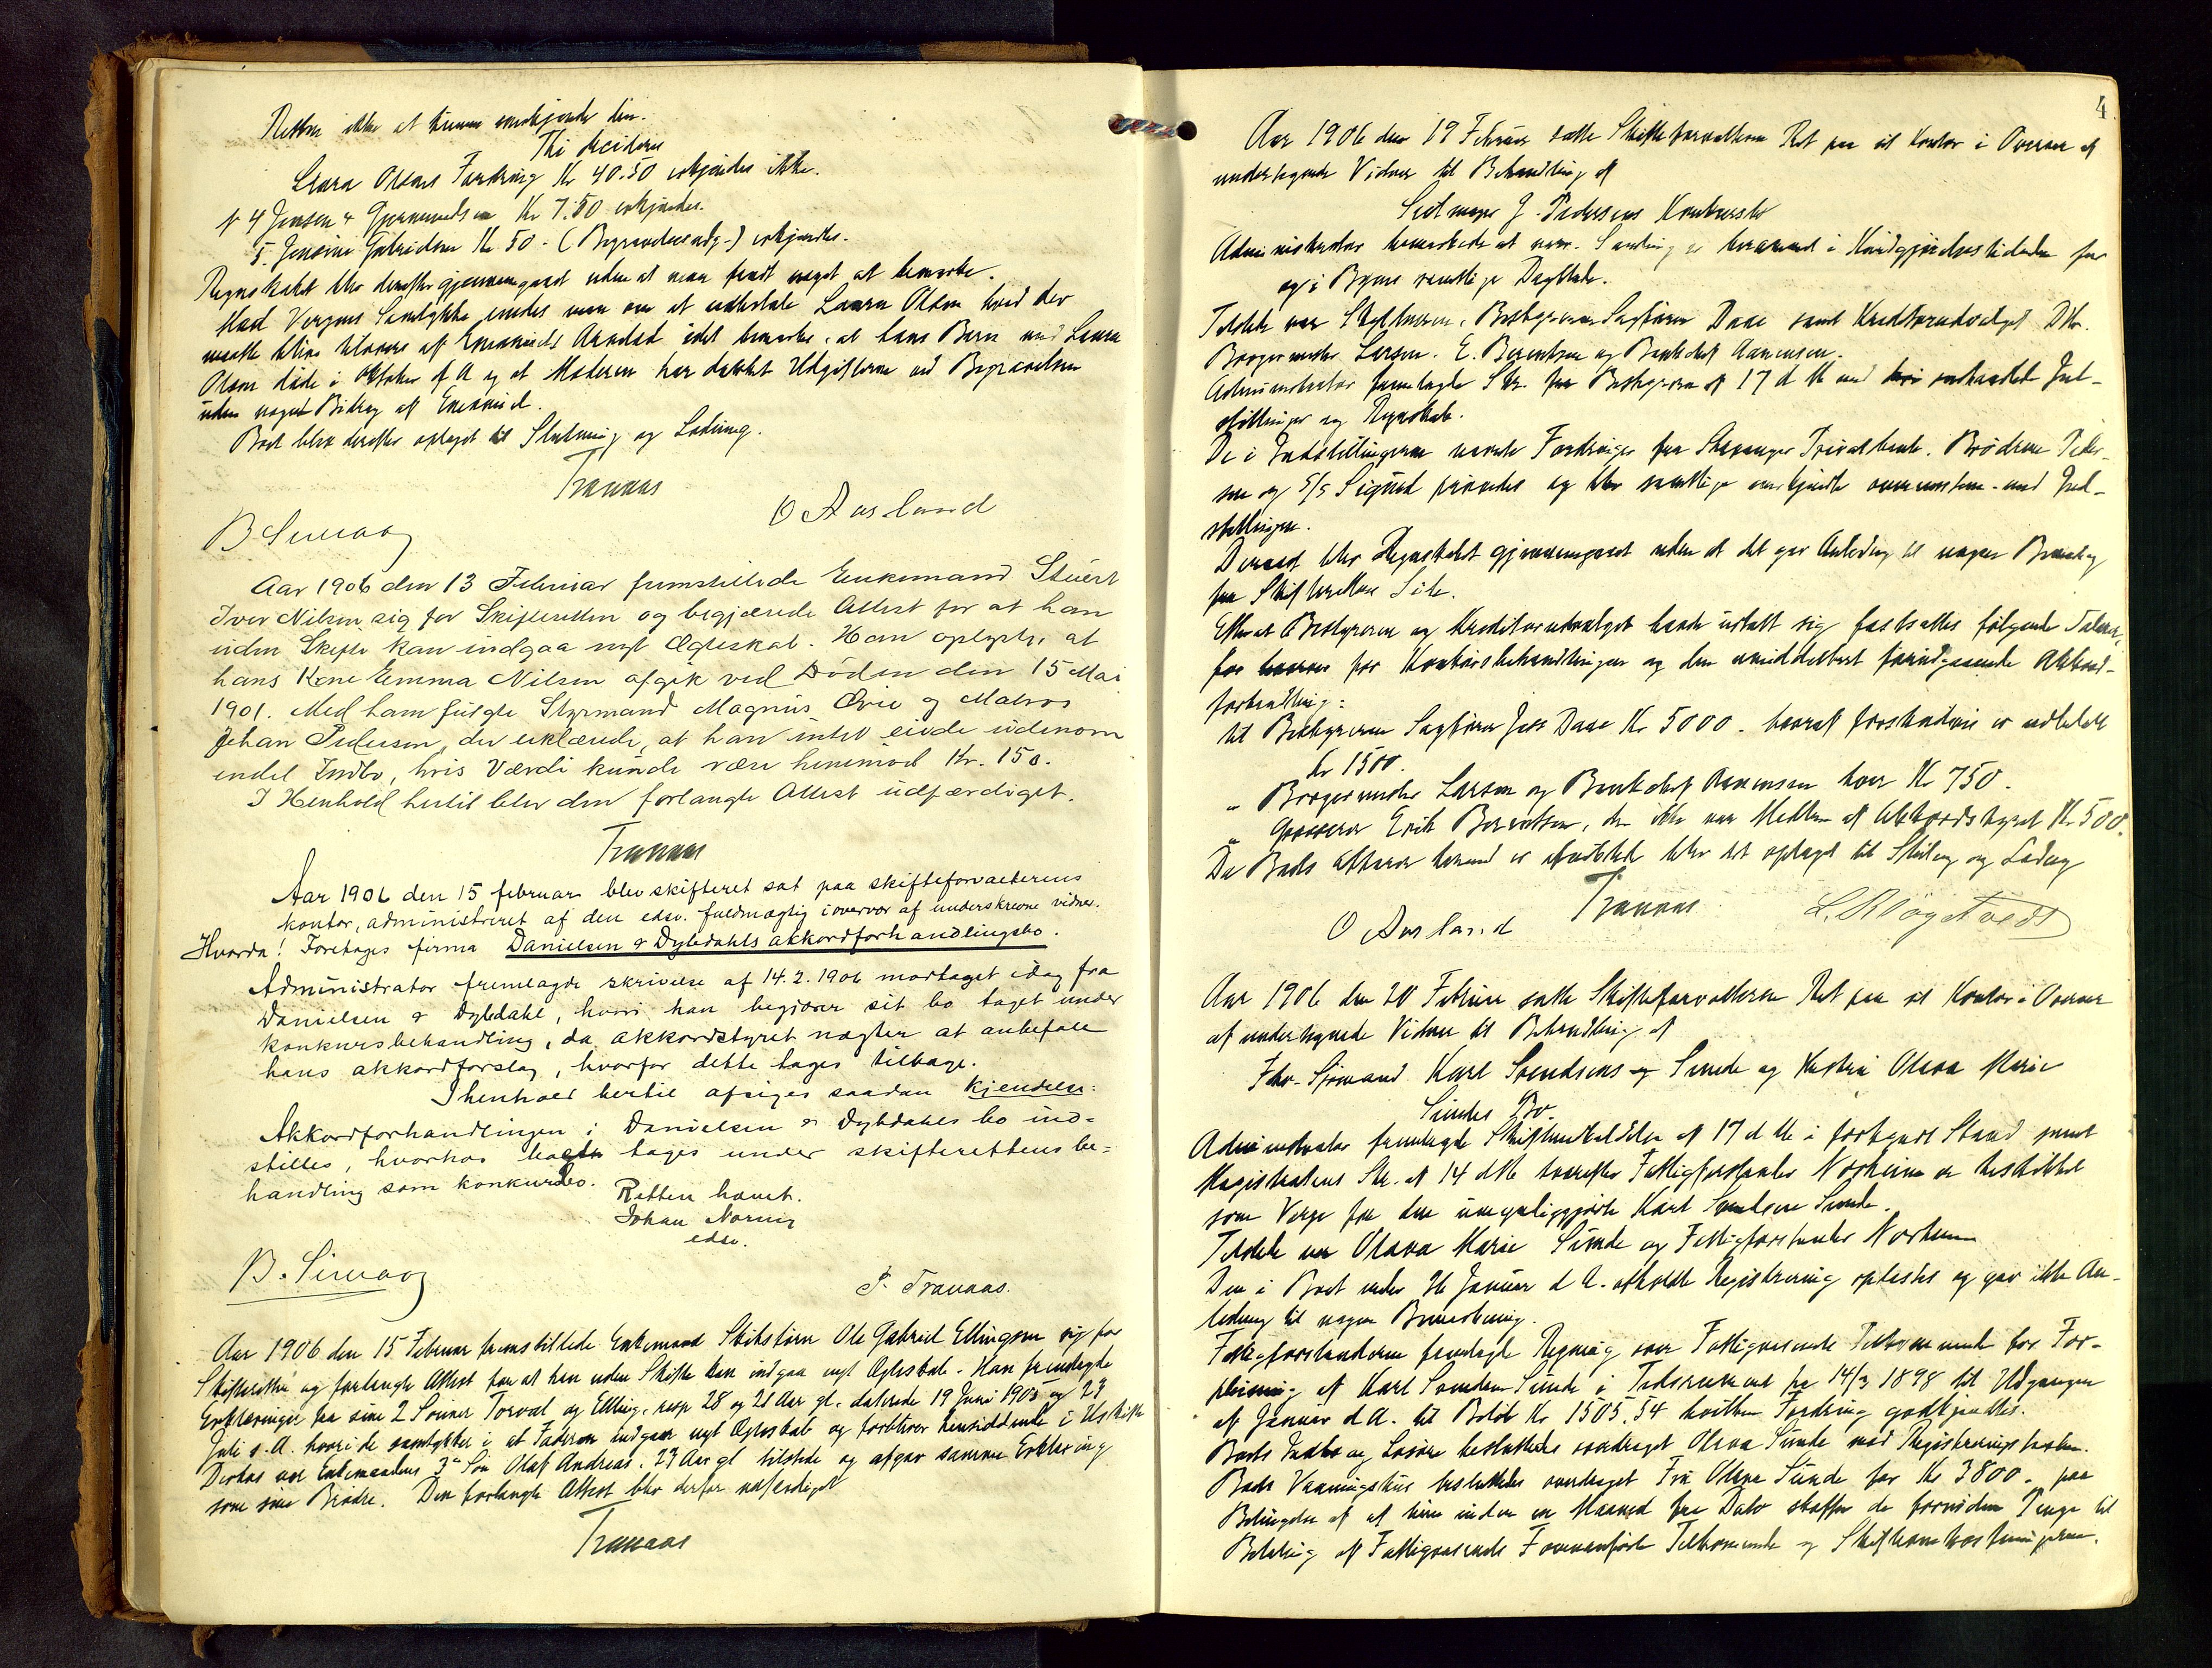 Retten ikke at kunne anerkjende den.
Thi decideres
Laura Olsens Fordring Kr 40.50 erkjendes ikke.
№ 4 Jensen & Gjermundsen Kr 7.50 erkjendes.
5. Jensine Gabrielsen Kr 50 - (Begravelsesudg-) erkjendtes.
Regnskabet blev derefter gjennemgaaet uden at man fandt noget at bemærke.
Med Vergens Samtykke enedes man om at udbetale Laura Olsen hvad der
maatte blive tilovers af Emanuels Arvelod idet bemærkes, at hans Barn med Laura
Olsen døde i Oktober f A og at Moderen har dækket Udgifterne ved Begravelsen
uden noget Bidrag af Emanuel.
Boet blev derefter optaget til Slutning og Lodning.
Tranaas
B Sirevaag O Ausland
Aar 1906 den 13 Februar fremstillede Enkemand Stuert
Iver Nilsen sig for Skifteretten og begjærede Attest for at han
uden Skifte kan indgaa nyt Ægteskab. Han oplyste, at
hans Kone Emma Nilsen afgik ved Døden den 15 Mai
1901. Med ham fulgte Styrmand Magnus Ørie og Matros
Johan Pedersen, der erklærede, at han intet eiede udenom
endel Indbo, hvis Værdi kunde være henimod Kr. 150.
I Henhold hertil blev den forlangte Attest udfærdiget.
Tranaas
Aar 1906 den 15 februar blev skifteret sat paa skifteforvalterens
kontor, administreret af den edsv. fuldmægtig i overvær af underskrevne vidner.
Hvorda! Foretoges firma Danielsen & Dybdahls akkordforhandlingsbo.
Administrator fremlagde skrivelse af 14.2.1906 modtaget idag fra
Danielsen & Dybdahl, hvori han begjærer sit bo taget under
konkursbehandling, da akkordstyret nægter at anbefale
hans akkordforslag, hvorfor dette tages tilbage.
I henhold hertil afsiges saadan kjendelse:
Akkordforhandlingen i Danielsen & Dybdahls bo ind-
stilles, hvorhos boet tages under skifterettens be-
handling som konkursbo.
Retten hævet.
Johan
edsv.
B. Sirevaag
P. Tranaas.
Aar 1906 den 15 Februar fremstillede Enkemand Ole Gabriel Ellingsen sig for
Skifteretten og forlangte Attest for at han uden Skifte kan indgaa nyt Ægteskab. Han fremlagde
Erklæringer fra sine 2 Sønner Torval og Elling, resp 28 og 21 Aar gl. daterede 19 Juni 1905 og 23
Juli s.A. hvori de samtykker i at Faderen indgaar nyt Ægteskab og forbliver hensiddende i Uskifte
Derhos var Enkemandens 3die Søn Olaf Andreas, 23 Aar gl tilstede og afgav samme Erklæring
som sine Brødre. Den forlangte Attest blev derfor udfærdiget
Tranaas
4
Aar 1906 den 19 Februar satte Skifteforvalteren Ret paa sit Kontor i Overvær af
undertegnede Vidner til Behandling af
J. Pedersens Konkursbo
Administrator bemærkede at nærv. Samling er berammet i Kundgjørelsestidende for
og i Byens samtlige Dagblade.
Tilstede var Skyldneren, Bestyreren Sagfører Daae samt Kreditorudvalget DHr.
Borgermester Larsen, E. Berentsen og Bankchef Aanensen.
Administrator fremlagde Skr. fra Bestyreren af 17 d M med indhæftet Ind-
stillinger og Regnskab.
De i Indstillingerne nævnte Fordringer fra Stavanger Privatbank, Brødrene Peder-
sen og S/S Sigurd prøvedes og blev samtlige anerkjendte overensstem. med Ind-
stillingen.
Dernæst blev Regnskabet gjennemgaaet uden at det gav Anledning til nogen Bemærkng
fra Skifterettens Side.
Efterat Bestyreren og Kreditorudvalget havde udtalt sig fastsattes følgende Salærer
for Konkursbehandlingen og den umiddelbart forudgaaende Akkord-
forhandling:
til Bestyreren Sagfører Jess Daae Kr 5000. hvoraf forskudsvis er udbetalt
Kr 1500.
" Borgermester Larsen og Bankchef Aanensen hver Kr 750.
" Grosserer Erik Berentsen, der ikke var Medlem af Akkordstyret Kr 500.
Da Boets blev det optaget til Slutng og Lodng
O Ausland Tranaas L. Røgstvedt
Aar 1906 den 20 Februar satte Skifteforvalteren Ret paa sit Kontor i Overvær
af undertegnede Vidner til Behandling af
Fhv. Sjømand Karl Svendsens Sunde og Hustru Olava Marie
Sundes Bo.
Administrator fremlagde Skifteindkaldelse af 17 d M i forkyndt Stand samt
Magistratens Skr. af 14 d M hvorefter Fattigforstander Norheim er beskikket
som Verge for den umyndiggjorte Karl Svendsen Sunde.
Tilstede var Olava Marie Sunde og Fattigforstander Norheim
Den i Boet under 26 Januar d A. afholdte Registrering oplæstes og gav ikke An-
ledning til nogen Bemærkning.
Fattigforstanderen fremlagde Regning over Fattigvæsenets Tilkommende for For-
pleining af Karl Svendsen Sunde i Tidsrummet fra 14/3 1898 til Udgangen
af Januar d A. til Beløb Kr 1505.54 hvilken Fordring godkjendtes.
Boets Indbo og Løsøre besluttedes overdraget Olava Sunde mod Registreringstaksten.
Boets Vaaningshus besluttedes overdraget Fru Olava Sunde for Kr 3800. paa
Betingelse af at hun inden en Maaned fra Dato skaffer de fornødne Penge til
Betaling af Fattigvæsenets Foranførte Tilkommende og Skifteomkostningerne.